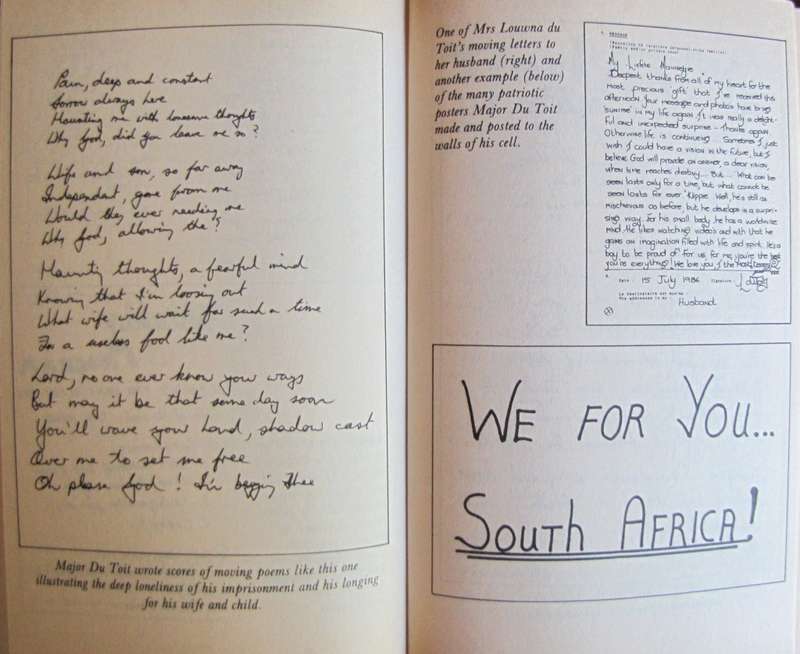 Pain, deep and constant
Sorrow always here
Haunting me with lonesome thoughts
Why God, did you leave me so?
Wife and son, so far away
Independent, gone from me
Would they ever needing me
Why God, allowing the?
Haunting thoughts, a fearful mind
Knowing that I'm loosing out
What wife will wait for such a time
For a useless fool like me?
Lord, no one ever know your ways
But may it be that some day soon
You'll wave your hand, shadow cast
Over me to set me free
Oh please God! I'm begging Thee
Major Du Toit wrote scores of moving poems like this one
illustrating the deep loneliness of his imprisonment and his longing
for his wife and child.
One of Mrs Louwna du
Toit's moving letters to
her husband (right) and
another example (below)
of the many patriotic
posters Major Du Toit
made and posted to the
walls of his cell.
My Liefste
Deepest thanks from all of my heart for the
most precious gift that I've received this
afternoon. Your message and photo's have bring
sunrise in my life again. It was really a delight-
ful and unexpected surprise - thanks again.
Otherwise life is continueing. Sometimes I just
wish I could have a vision in the future, but I
believe God will provide an answer, a clear vision,
when time reaches destiny... But... What can be
seen lasts only for a time, but what cannot be
seen lasts for ever. Klippie. Well, he's still as
mischievous as before, but he develops in a surpri-
sing way. For his small body he has a worldwise
mind. He likes watching videos and with that he
gains an imagination filled with life and spirit. He's a
boy to be proud of. For us, for me, you're the best
you're everything! We love you,
15 July 1986
Husband
WE FOR YOU...
SOUTH AFRICA!